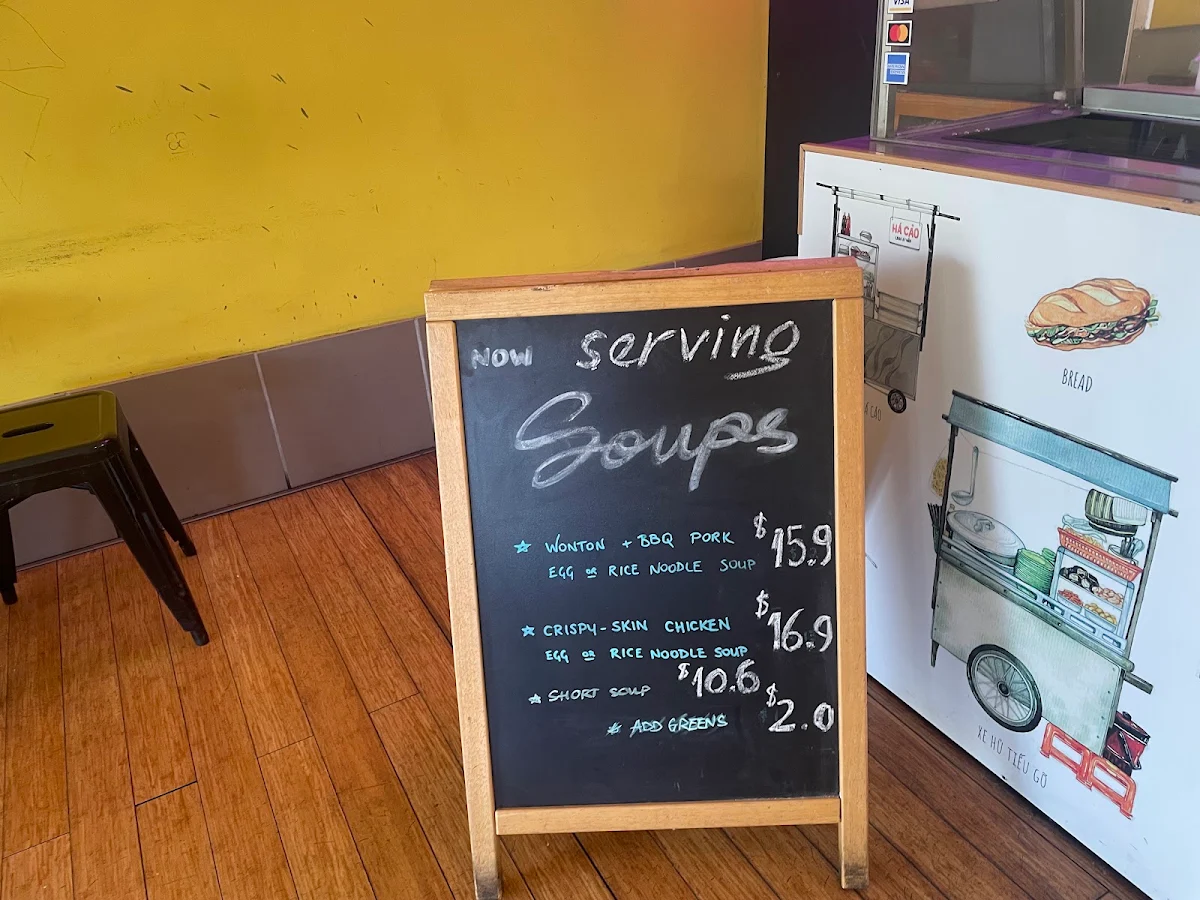 VISA
NOW serving
Soups
WONTON + BBQ PORK $15.9
EGG OR RICE NOODLE SOUP
CRISPY-SKIN CHICKEN $16.9
EGG OR RICE NOODLE SOUP
SHORT SOUP $10.6
* ADD GREENS $2.0
HÁ CẢO
BREAD
XE HỦ TIẾU GÕ